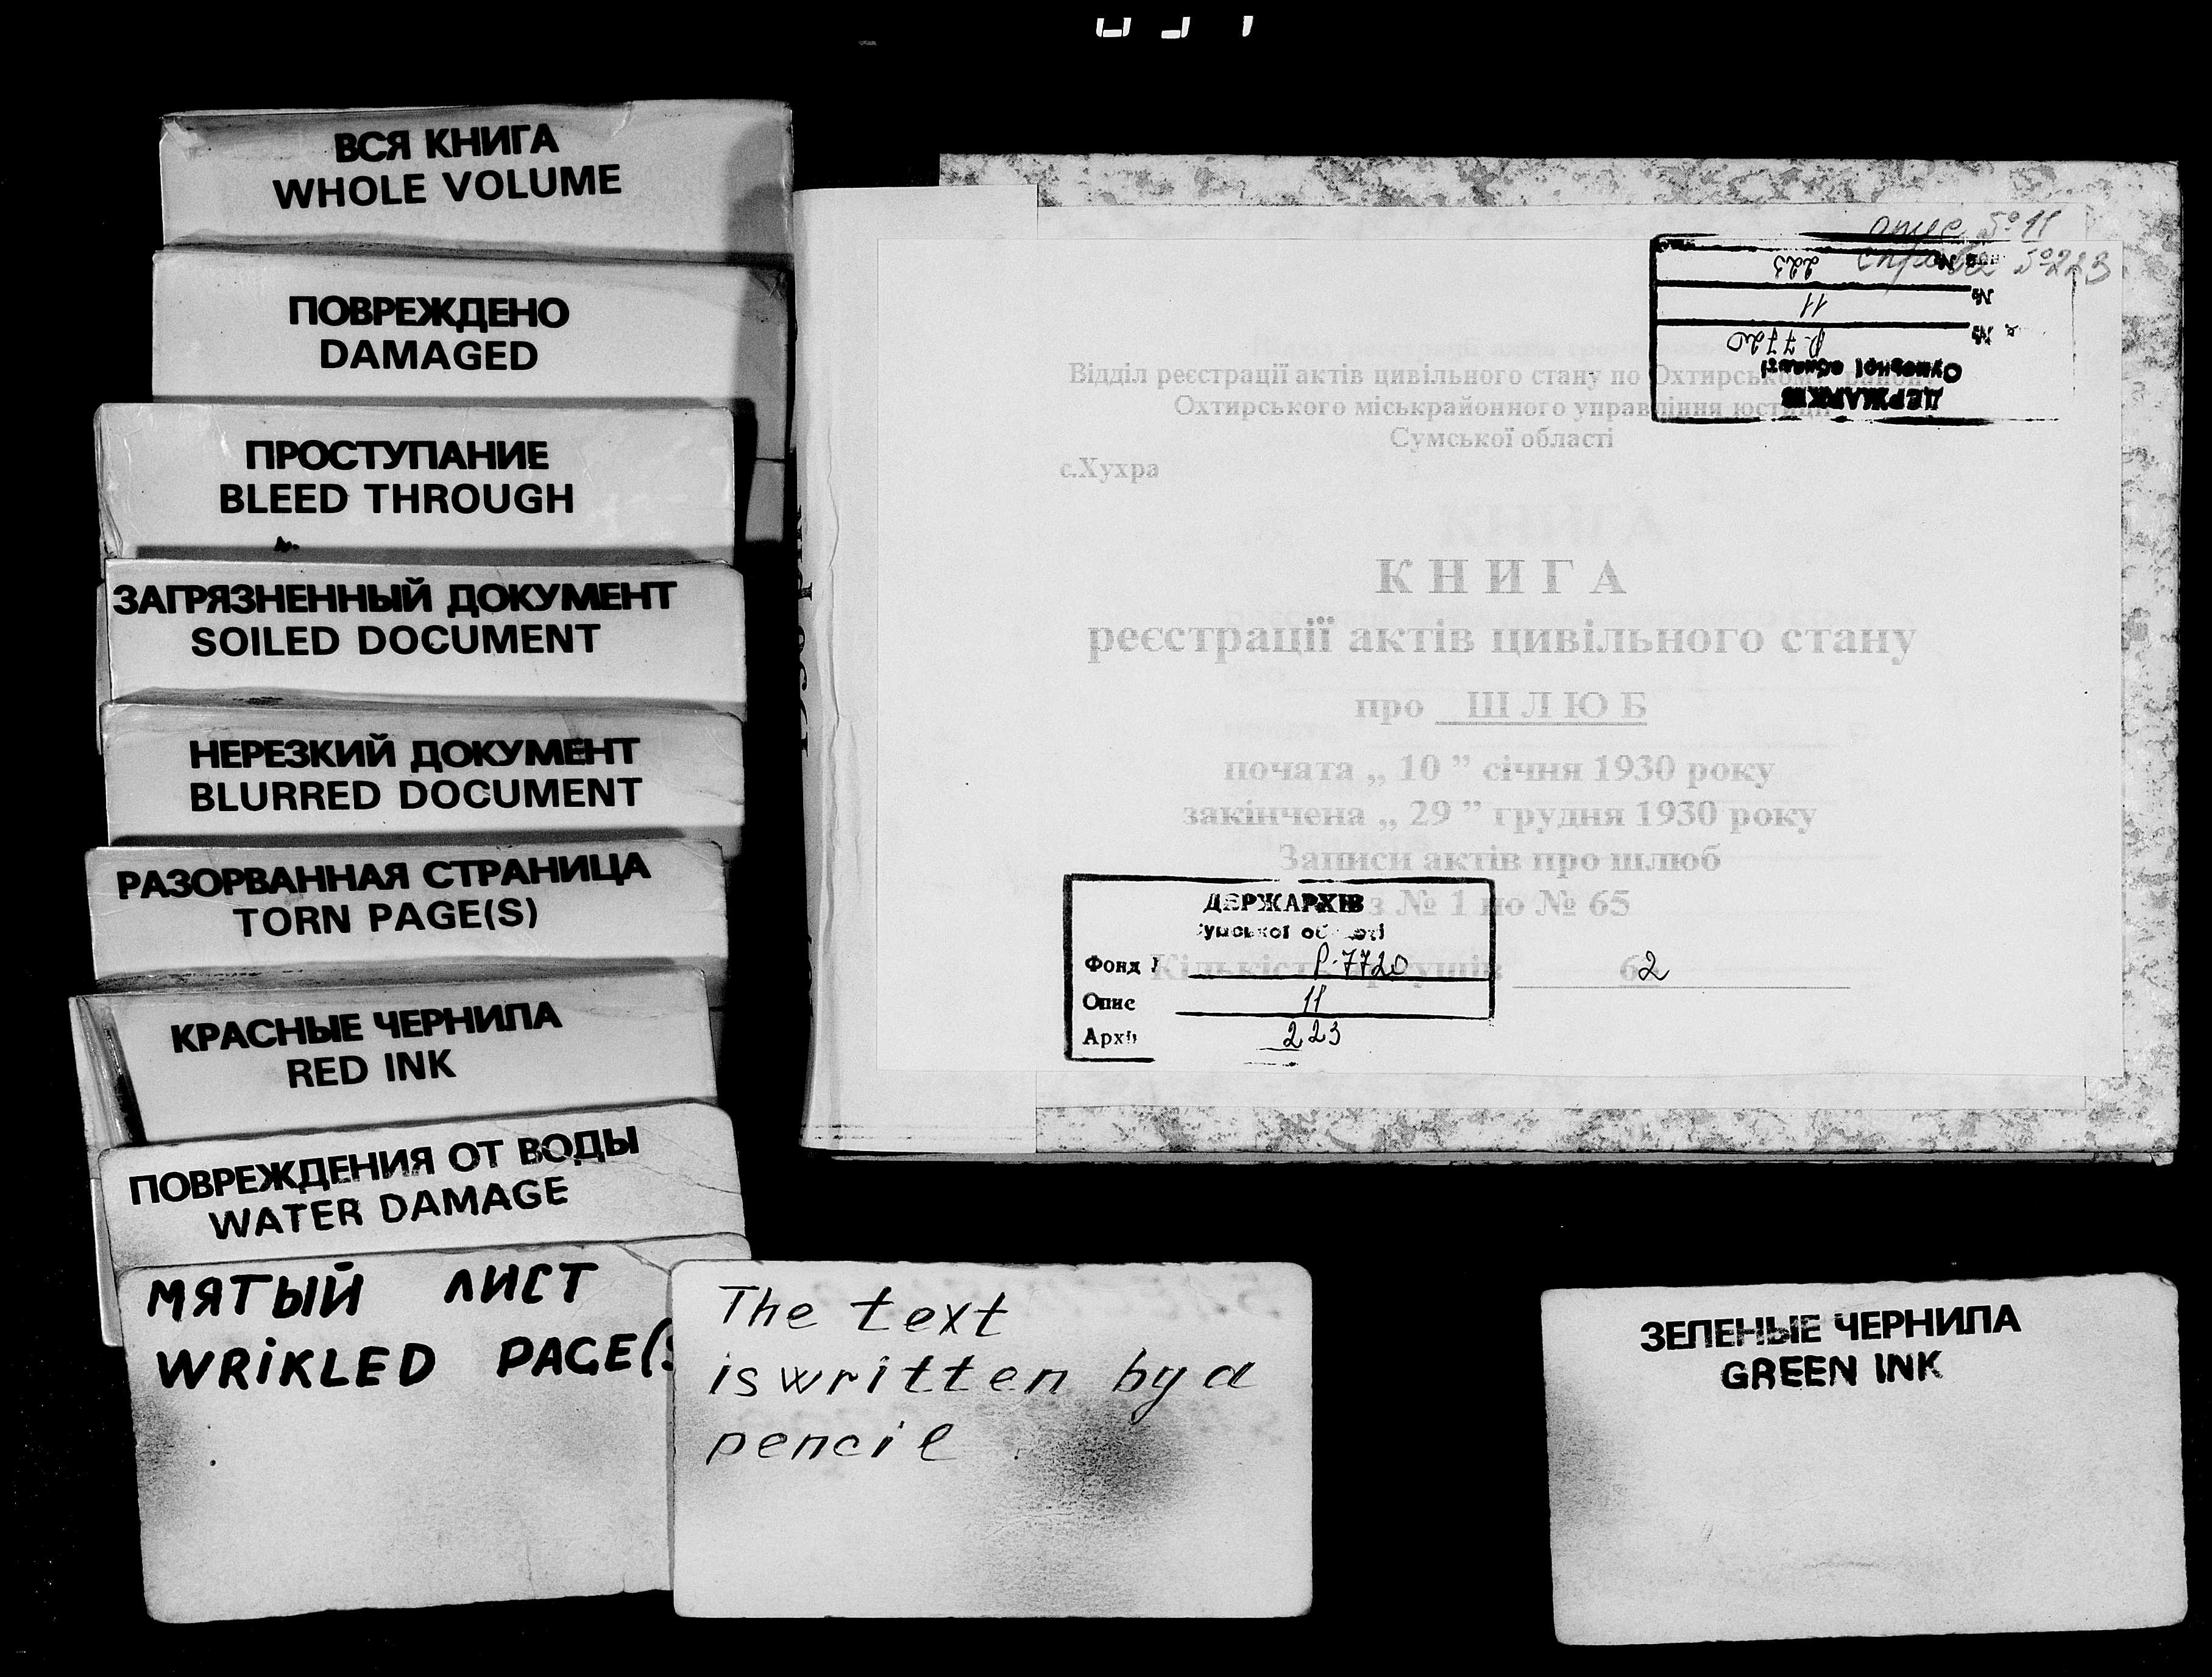 ВСЯ КНИГА
WHOLE VOLUME
ПОВРЕЖДЕНО
DAMAGED
ПРОСТУПАНИЕ
BLEED THROUGH
ЗАГРЯЗНЕННЫЙ ДОКУМЕНТ
SOILED DOCUMENT
НЕРЕЗКИЙ ДОКУМЕНТ
BLURRED DOCUMENT
РАЗОРВАННАЯ СТРАНИЦА
TORN PAGE(S)
КРАСНЫЕ ЧЕРНИЛА
RED INK
ПОВРЕЖДЕНИЯ ОТ ВОДЫ
WATER DAMAGE
МЯТЫЙ ЛИСТ
WRIKLED PAGE(S
The text
is written by a
pencil
ЗЕЛЕНЫЕ ЧЕРНИЛА
GREEN INK
опис № 11
справа № 223
ДЕРЖАРХІВ
Сумської області
№ Р-7720
№ 11
№ 223
Відділ реєстрації актів цивільного стану по Охтирському району
Охтирського міськрайонного управління юстиції
Сумської області
с.Хухра
КНИГА
реєстрації актів цивільного стану
про ШЛЮБ
почата „ 10 ” січня 1930 року
закінчена „ 29 ” грудня 1930 року
Записи актів про шлюб
з № 1 по № 65
Кількість аркушів 62
ДЕРЖАРХІВ
Сумської області
Фонд Р-7720
Опис 11
Архів 223